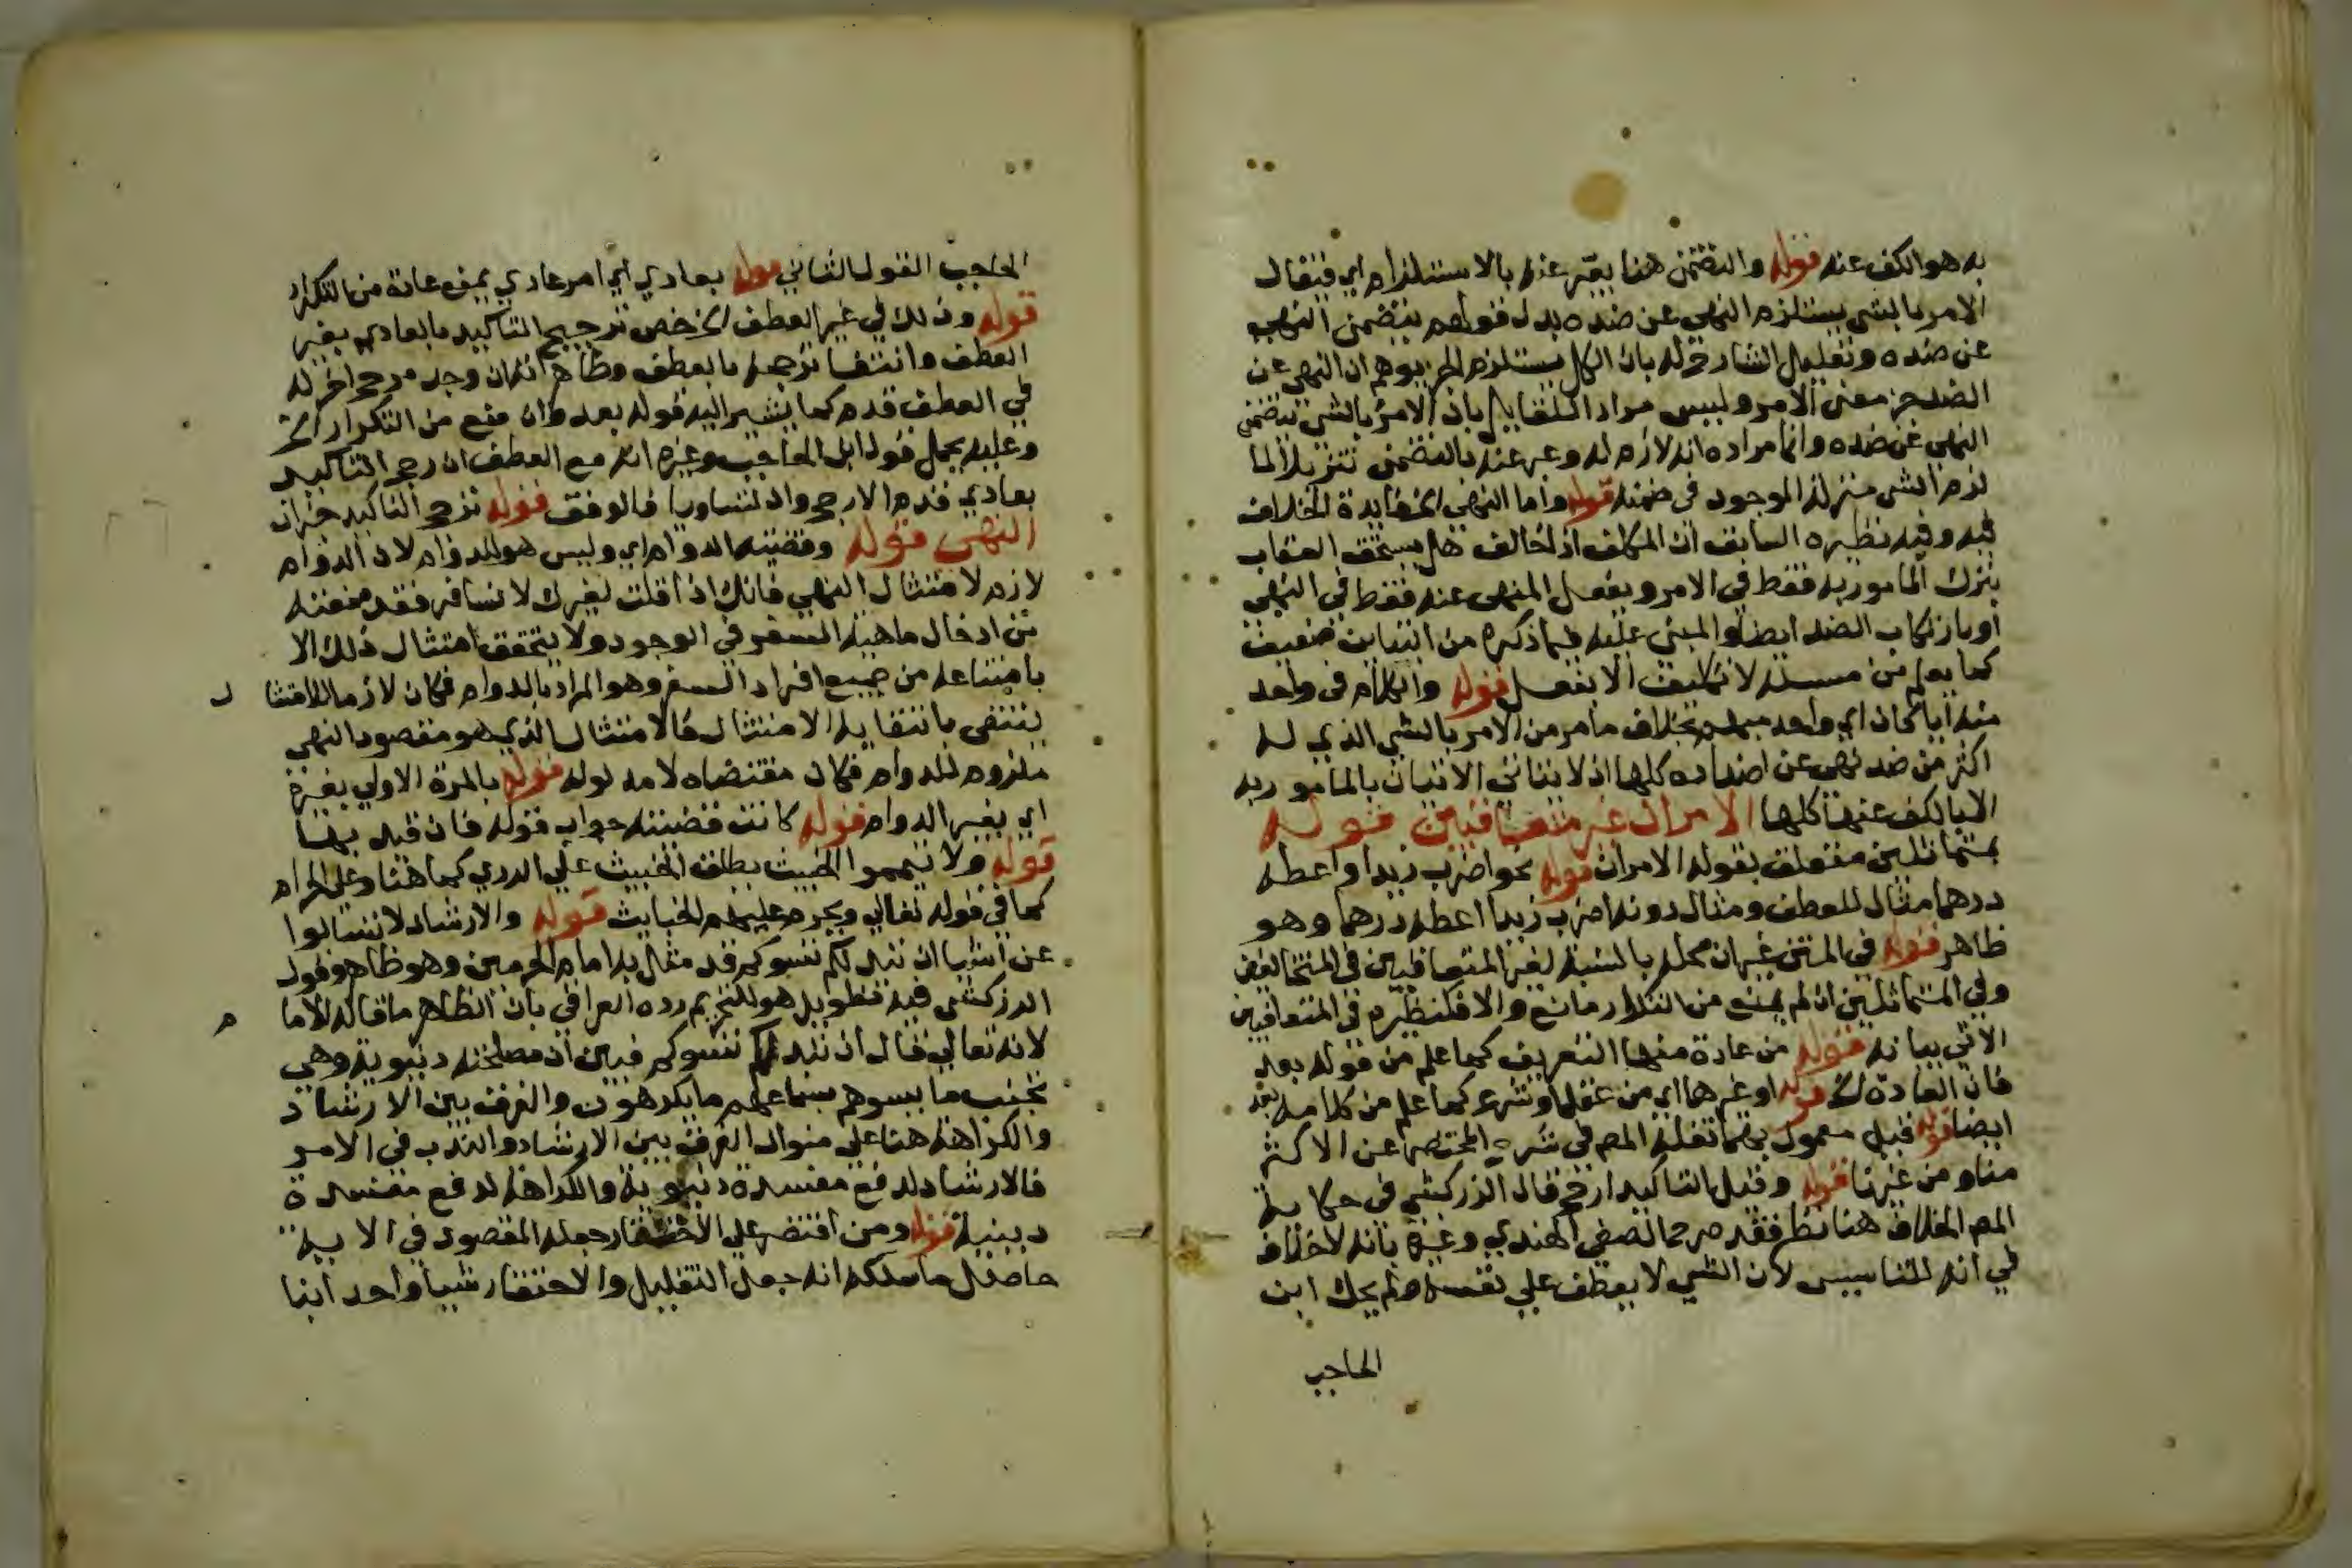 به هو الكف عنه قوله والتضمن هنا يعبر عنه بالاستلزام اي فيقال
الامر بالشي يستلزم النهي عن ضده بدل قولهم يتضمن النهي
عن ضده وتعليل الشارح له بان الكل يستلزم الجزء يوهم ان النهي عن
الضد جزء معنى الامر وليس مراد القايل بان الامر بالشي يتضمن
النهي عن ضده وانما مراده انه لازم له وعبر عنه بالتضمن تنزيلا لما
لزم الشي منزلة الموجود في ضمنه قوله واما النهي الخ فايدة الخلاف
فيه وفي نظيره السابق ان المكلف اذا خالف هل يستحق العقاب
بترك المامور به فقط في الامر وبفعل المنهي عنه فقط في النهي
او بارتكاب الضد ايضا والمبني عليه فيما ذكره من البنايين ضعيف
كما يعلم من مسئلة لا تكليف الا بفعل قوله والكلام في واحد
منه ايا كان اي واحد مبهم بخلاف ما مر من الامر بالشي الذي له
اكثر من ضد نهي عن اضداده كلها اذ لا يتاتى الاتيان بالمامور به
الا بالكف عنها كلها الامران غير متعاقبين قوله
بمتماثلين متعلق بقوله الامران قوله نحو اضرب زيدا واعطه
درهما مثال للعطف ومثال دونه اضرب زيدا اعطه درهما وهو
ظاهر قوله في المتن غيران محله بالنسبة لغير المتعاقبين في المتخالفين
وفي المتماثلين ان لم يمنع من التكرار مانع والا فكنظيره في المتعاقبين
الاتي بيانه قوله من عادة منها التعريف كما علم من قوله بعد
فان العادة الخ قوله او غيرها اي من عقل او شرع كما علم من كلامه بعد
ايضا قوله قيل معمول بهما نقله المص في شرح المختصر عن الاكثر
منا ومن غيرنا قوله وقيل التاكيد ارجح قال الزركشي في حكاية
المص الخلاف هنا نظر فقد صرح الصفي الهندي وغيره بانه لا خلاف
في انه للتاسيس لان الشي لا يعطف على نفسه ولم يحك ابن
الحاجب
الحاجب القول الثاني قوله بعادي اي امر عادي يمنع عادة من التكرار
قوله وذلك في غير العطف الخ خص ترجيح التاكيد بالعادي بغير
العطف وانتفا ترجحه بالعطف وظاهر انه ان وجد مرجح اخر له
في العطف قدم كما يشير اليه قوله بعد وان منع من التكرار الخ
وعليه يحمل قول ابن الحاجب وغيره انه مع العطف ان رجح التاكيد
بعادي قدم الارجح وان تساويا فالوقف قوله ترجح التاكيد
النهي قوله وقضيته الدوام اي وليس هو للدوام لان الدوام
لازم لامتثال النهي فانك اذا قلت لغيرك لا تسافر فقد منعته
من ادخال ماهية السفر في الوجود ولا يتحقق امتثال ذلك الا
بامتناعه من جميع افراد السفر وهو المراد بالدوام فكان لازما للامتثا ل
ينتفي بانتفايه الامتثال فالامتثال الذي هو مقصود النهي
ملزوم للدوام فكان مقتضاه لا مدلوله قوله بالمرة الاولي بغيره
اي بغير الدوام قوله كانت قضيته جواب قوله فان قيد بها
قوله ولا تيمموا الخبيث يطلق الخبيث علي الردي كما هنا وعلي الحرام
كما في قوله تعالي ويحرم عليهم الخبايث قوله والارشاد لا تسالوا
عن اشيا ان تبد لكم تسوكم قد مثل به امام الحرمين وهو ظاهر وقول
الزركشي فيه نظر بل هو للتحريم رده العراقي بان الظاهر ما قاله الاما م
لانه تعالي قال ان تبد لكم تسوكم فبين ان مصلحته دنيوية وهي
تجنب ما يسوهم بسماعهم ما يكرهون والفرق بين الارشاد
والكراهة هنا علي منوال الفرق بين الارشاد والندب في الامر
فالارشاد لدفع مفسدة دنيوية والكراهة لدفع مفسدة
دينية قوله ومن اقتصر علي الاحتقار جعله المقصود في الاية
حاصل ما سلكه انه جعل التقليل والاحتقار شيا واحد اينا